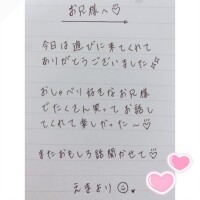 お兄様へ♡
今日は遊びに来てくれて
ありがとうございました
おしゃべり好きなお兄様
でたくさん笑ってお話し
てくれて楽しかった〜♡
またおもしろ話聞かせて♡
えまより☺